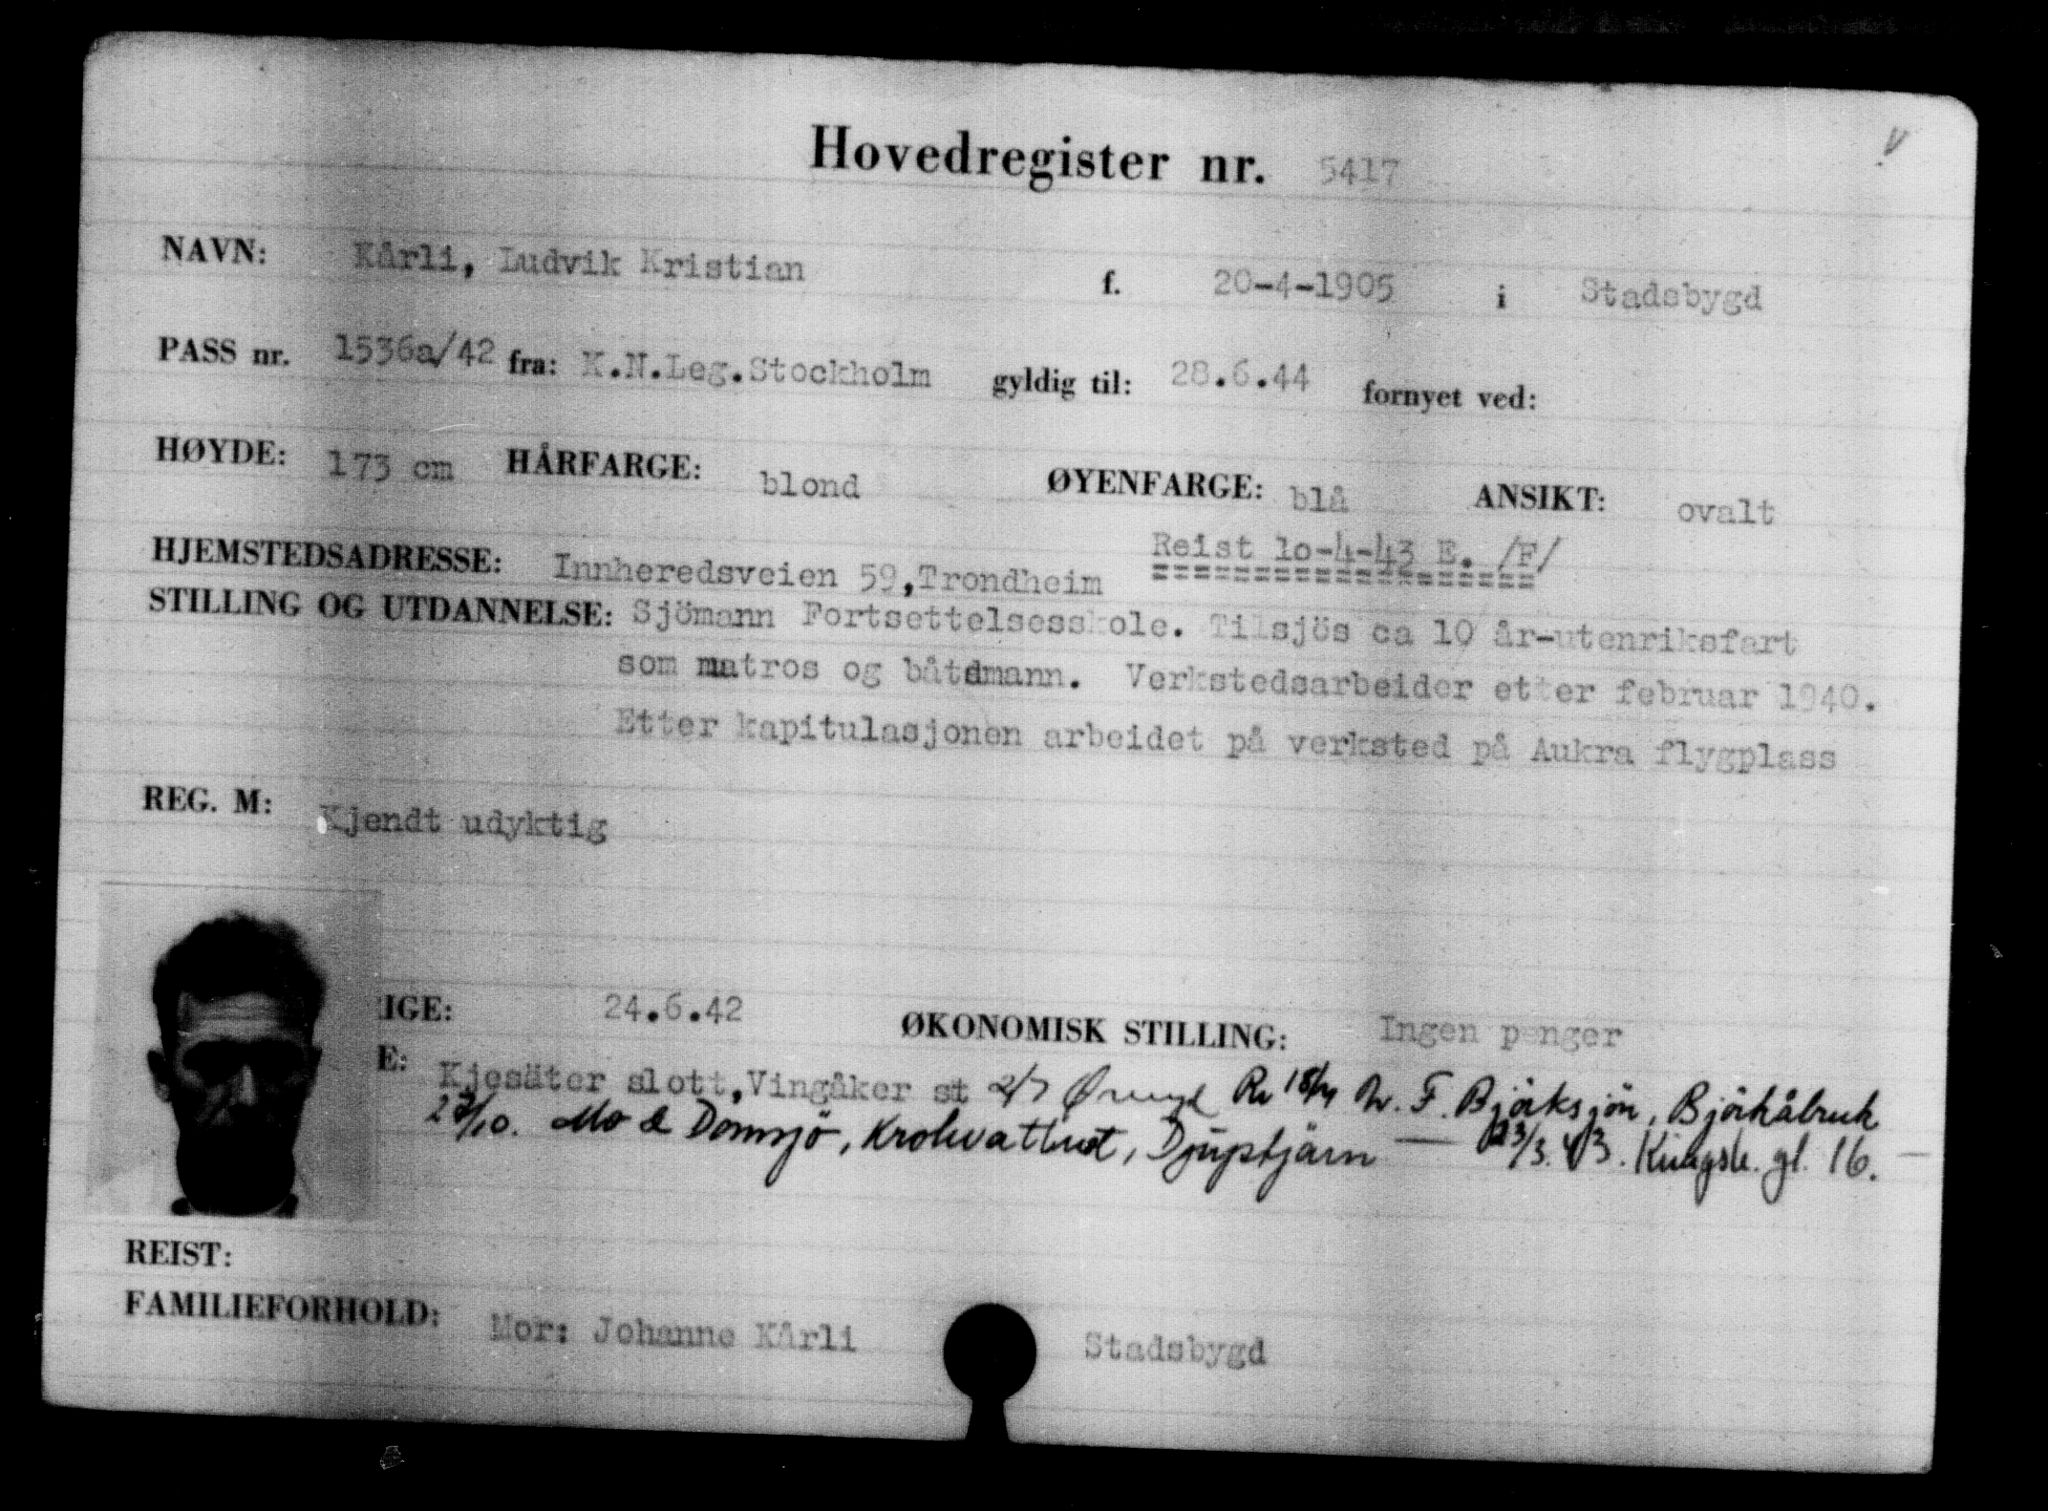 Hovedregister nr. 5417
NAVN: Kårli, Ludvik Kristian f. 20-4-1905 i Stadsbygd
PASS nr. 1536a/42 fra: K.N.Leg.Stockholm gyldig til: 28.6.44 fornyet ved:
HØYDE: 173 cm HÅRFARGE: blond ØYENFARGE: blå ANSIKT: ovalt
Reist 10-4-43 E. /F/
HJEMSTEDSADRESSE: Innheredsveien 59,Trondheim
STILLING OG UTDANNELSE: Sjömann Fortsettelsesskole. Tilsjös ca 10 år-utenriksfart
som matros og båtsmann. Verkstedsarbeider etter februar 1940.
Etter kapitulasjonen arbeidet på verksted på Aukra flygplass
REG. M: Kjendt udyktig
IGE: 24.6.42 ØKONOMISK STILLING: Ingen penger
E: Kjesäter slott,Vingåker st 2/7 F. Björksjön, Björkåbruk
Mo & Domsjö, Djuptjärn — 23/3.43. Kungsh. gl. 16. —
REIST:
FAMILIEFORHOLD: Mor: Johanne Kårli Stadsbygd